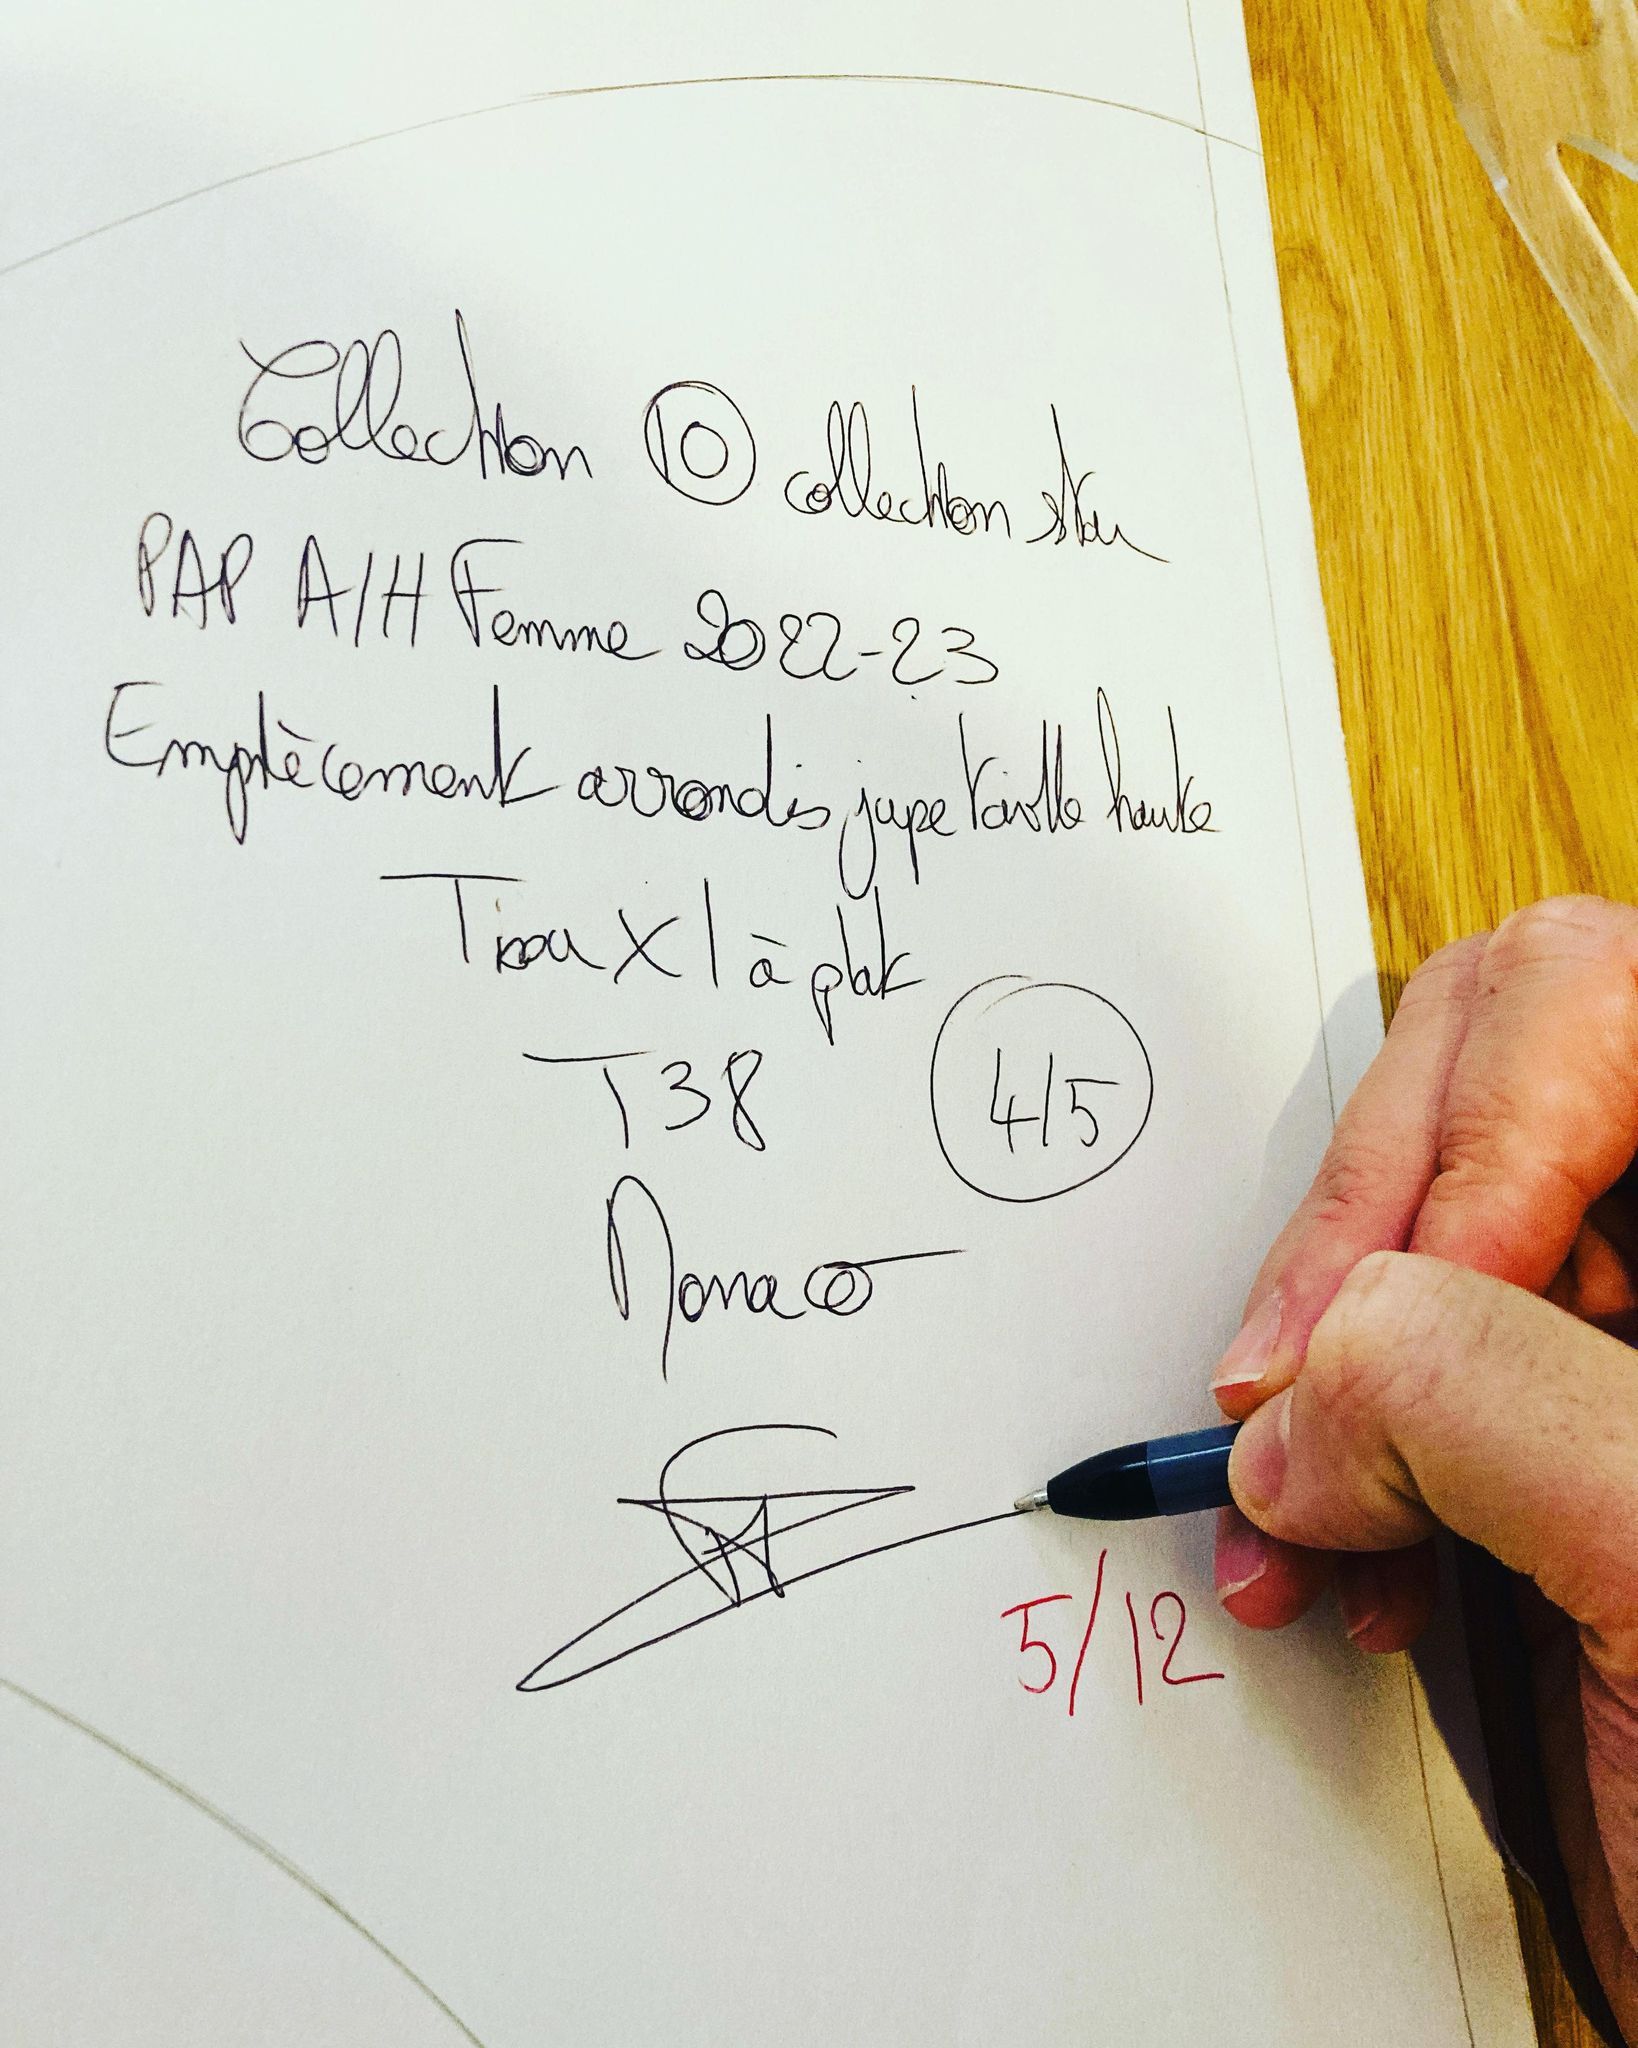 Collection 10 collection star
PAP A/H Femme 2022-23
Emplècement arrondis jupe taille haute
Tissu X 1 à plat
T38
4/5
Monaco
5/12